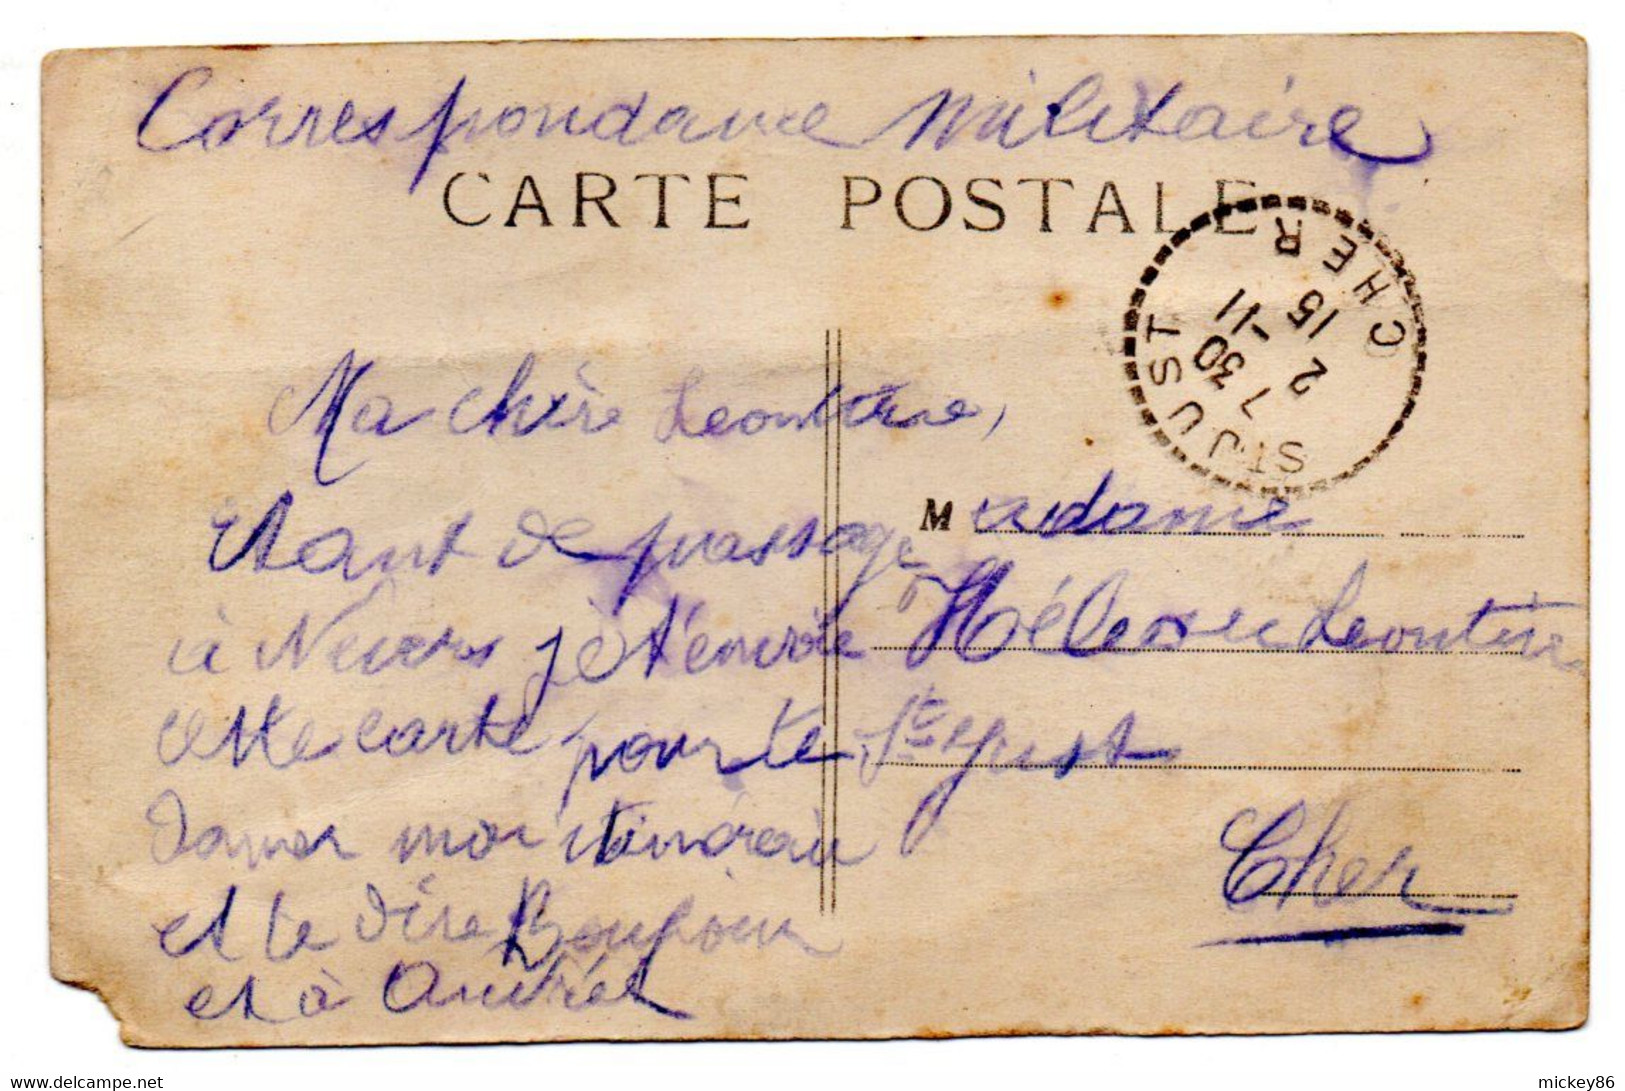 Correspondance Militaire
CARTE POSTALE
ST JUST
CHER
7 30
2 -11
15
Ma chère Leontine,
Etant de passage
à Nevers je t'envoie
cette carte pour te
donner mon itineraire
et te dire Bonjour
et à André
Madame
Leontine
St Just
Cher
delcampe.net
mickey86